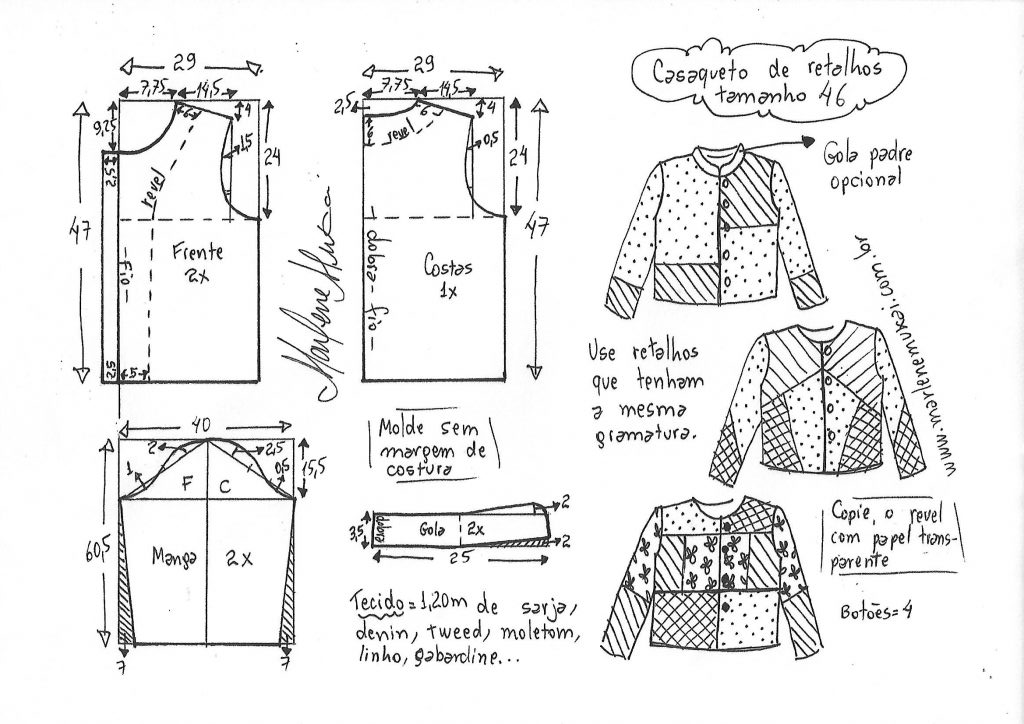 Casaqueto de retalhos
tamanho 46
29
7,75
14,5
9,25
6
4
1,5
24
2,5
revel
47
Frente
2x
fio
2,5
5
29
7,75
14,5
2,5
6
revel
6
4
0,5
24
47
dobra - fio
Costas
1x
Marlene Mukai
Gola padre
opcional
www.marlenemukai.com.br
Use retalhos
que tenham
a mesma
gramatura.
40
2
2,5
1
0,5
15,5
F
C
60,5
Manga
2x
7
7
Molde sem
margem de
costura
3,5
Gola
2x
2
2
25
Tecido = 1,20m de sarja,
denin, tweed, moletom,
linho, gabardine...
Copie, o revel
com papel trans-
parente
Botões = 4